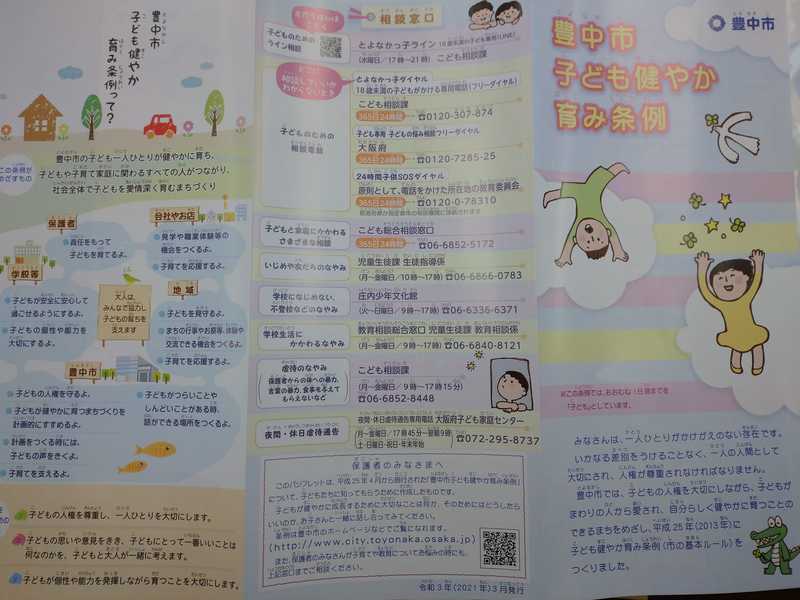 豊中市
子ども健やか
育み条例って？
この条例が
めざすもの
豊中市の子ども一人ひとりが健やかに育ち、
子どもや子育て家庭に関わるすべての人がつながり、
社会全体で子どもを愛情深く育むまちづくり
保護者
責任をもって
子どもを育てるよ。
会社やお店
見学や職業体験等の
機会をつくるよ。
子育てを応援するよ。
学校等
子どもが安全に安心して
過ごせるようにするよ。
子どもの個性や能力を
大切にするよ。
大人は、
みんなで協力し
子どもの育ちを
支えます
地域
子どもを見守るよ。
まちの行事やお祭等、体験や
交流できる機会をつくるよ。
子育てを応援するよ。
豊中市
子どもの人権を守るよ。
子どもが健やかに育つまちづくりを
計画的にすすめるよ。
計画をつくる時には、
子どもの声をきくよ。
子育てを支えるよ。
子どもがつらいことや
しんどいことがある時、
話ができる場所をつくるよ。
子どもの人権を尊重し、一人ひとりを大切にします。
子どもの思いや意見をきき、子どもにとって一番いいことは
何なのかを、子どもと大人が一緒に考えます。
子どもが個性や能力を発揮しながら育つことを大切にします。
相談窓口
子どものための
ライン相談
とよなかっ子ライン 18歳未満の子ども専用(LINE)
(水曜日／17時～21時) こども相談課
どこに
相談していいか
わからないとき
子どものための
相談電話
とよなかっ子ダイヤル
18歳未満の子どもがかける専用電話(フリーダイヤル)
こども相談課
365日24時間 ☎0120-307-874
子ども専用 子どもの悩み相談フリーダイヤル
大阪府
365日24時間 ☎0120-7285-25
24時間子供SOSダイヤル
原則として、電話をかけた所在地の教育委員会
365日24時間 ☎0120-0-78310
子どもと家庭にかかわる
さまざまな相談
こども総合相談窓口
365日24時間 ☎06-6852-5172
いじめや友だちのなやみ
児童生徒課 生徒指導係
(月～金曜日／10時～17時) ☎06-6866-0783
学校になじめない、
不登校などのなやみ
庄内少年文化館
(火～日曜日／9時～17時) ☎06-6336-6371
学校生活に
かかわるなやみ
教育相談総合窓口 児童生徒課 教育相談係
(月～金曜日／9時～17時) ☎06-6840-8121
虐待のなやみ
保護者からの体への暴力、
言葉の暴力、食事を与えて
もらえないなど
こども相談課
(月～金曜日／9時～17時15分)
☎06-6852-8448
夜間・休日虐待通告
夜間・休日虐待通告専用電話 大阪府子ども家庭センター
(月～金曜日／17時45分～翌朝9時)
土・日曜日・祝日・年末年始
☎072-295-8737
保護者のみなさまへ
このパンフレットは、平成25年4月から施行された「豊中市子ども健やか育み条例」
について、子どもたちに知ってもらうために作成したものです。
子どもが健やかに成長するために大切なことは何か、そのためにはどうしたら
いいのか、お子さんと一緒に話し合ってみてください。
条例は豊中市のホームページなどでご覧になれます。
(http://www.city.toyonaka.osaka.jp)
また、保護者のみなさんが子育てや教育についてお悩みの時にも、
上記窓口までご相談ください。
令和3年(2021年)3月発行
豊中市
豊中市
子ども健やか
育み条例
※この条例では、おおむね18歳までを
「子ども」としています。
みなさんは、一人ひとりがかけがえのない存在です。
いかなる差別をうけることなく、一人の人間として
大切にされ、人権が尊重されなければなりません。
豊中市では、子どもの人権を大切にしながら、子どもが
まわりの人から愛され、自分らしく健やかに育つことの
できるまちをめざし、平成25年(2013年)に
子ども健やか育み条例（市の基本ルール）を
つくりました。